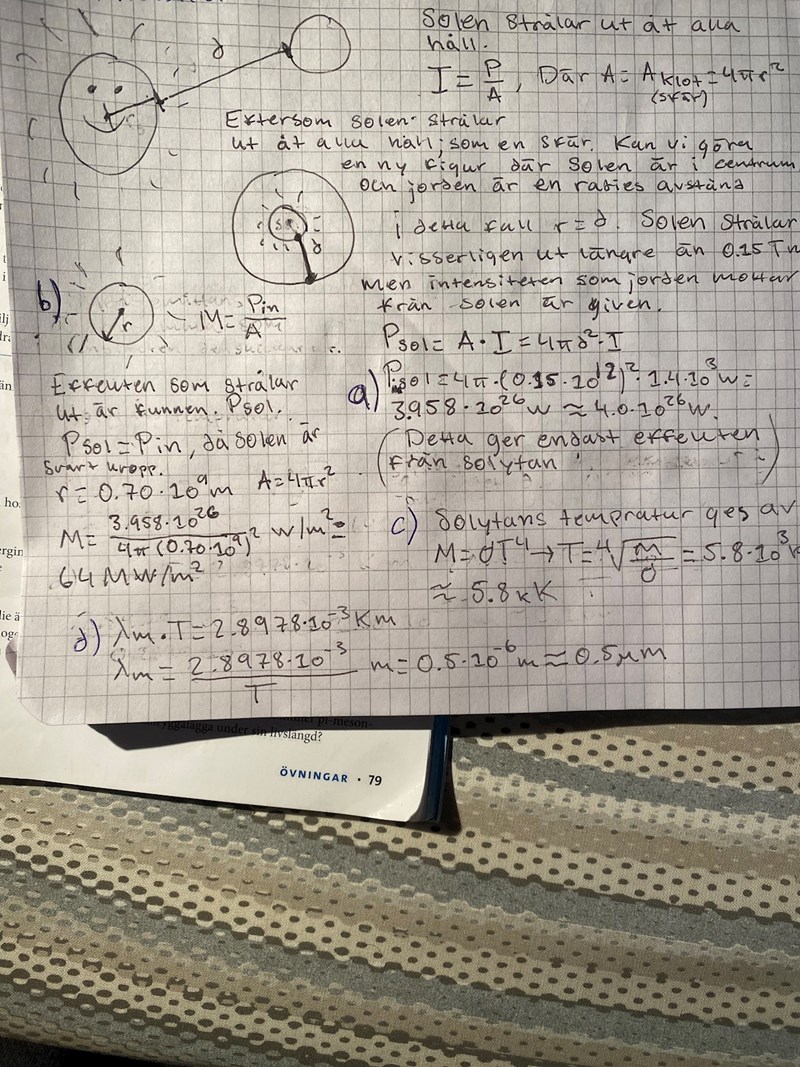 Solen strålar ut åt alla
håll.
I = P/A, Där A = A klot = 4πr²
(sfär)
Eftersom solen strålar
ut åt alla håll; som en sfär. Kan vi göra
en ny figur där solen är i centrum
och jorden är en radies avstånd
i detta fall r = d. Solen strålar
visserligen ut längre än 0.15 Tm
men intensiteten som jorden mottar
från solen är given.
Psol = A · I = 4πd² · I
a) Psol = 4π · (0.15 · 10¹²)² · 1.4 · 10³ W =
3.958 · 10²⁶ W ≈ 4.0 · 10²⁶ W.
(Detta ger endast effekten
från solytan)
d
r
d
b)
r
M = Pin/A
Effekten som strålar
ut är funnen. Psol.
Psol = Pin, då solen är
svart kropp.
r = 0.70 · 10⁹ m A = 4πr²
M = 3.958 · 10²⁶ / 4π (0.70 · 10⁹)² W/m² =
64 MW/m²
c) Solytans tempratur ges av
M = σT⁴ → T = ⁴√(M/σ) = 5.8 · 10³ K
≈ 5.8 kK
d) λm · T = 2.8978 · 10⁻³ Km
λm = 2.8978 · 10⁻³ / T m = 0.5 · 10⁻⁶ m ≈ 0.5 μm
pi-meson-
under sin livslängd?
ÖVNINGAR · 79